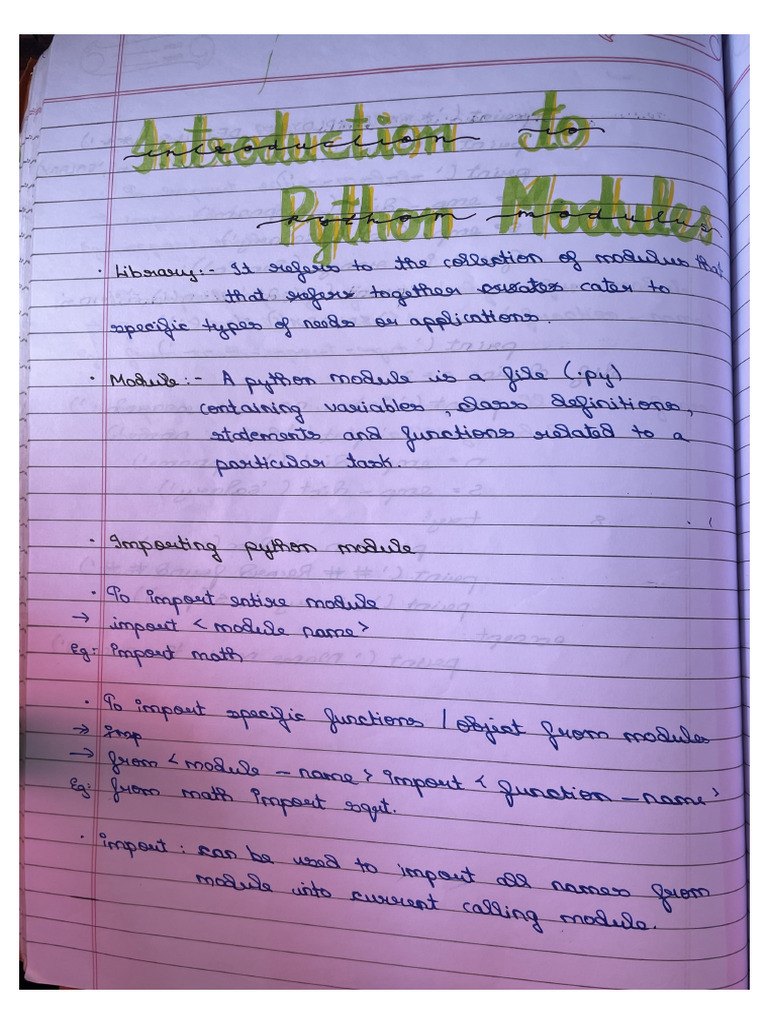 Introduction to
Python Modules
• Library:- It refers to the collection of modules that
that refers together creates cater to
specific types of needs or applications.
• Module:- A python module is a file (.py)
containing variables, class definitions,
statements and functions related to a
particular task.
• Importing python module
• To import entire module
→ import < module name>
Eg: Import math
• To import specific functions / object from modules
→ Imp
→ from < module - name > Import < function - name>
Eg: from math Import sqrt.
• import : can be used to import all names from
module into current calling module.